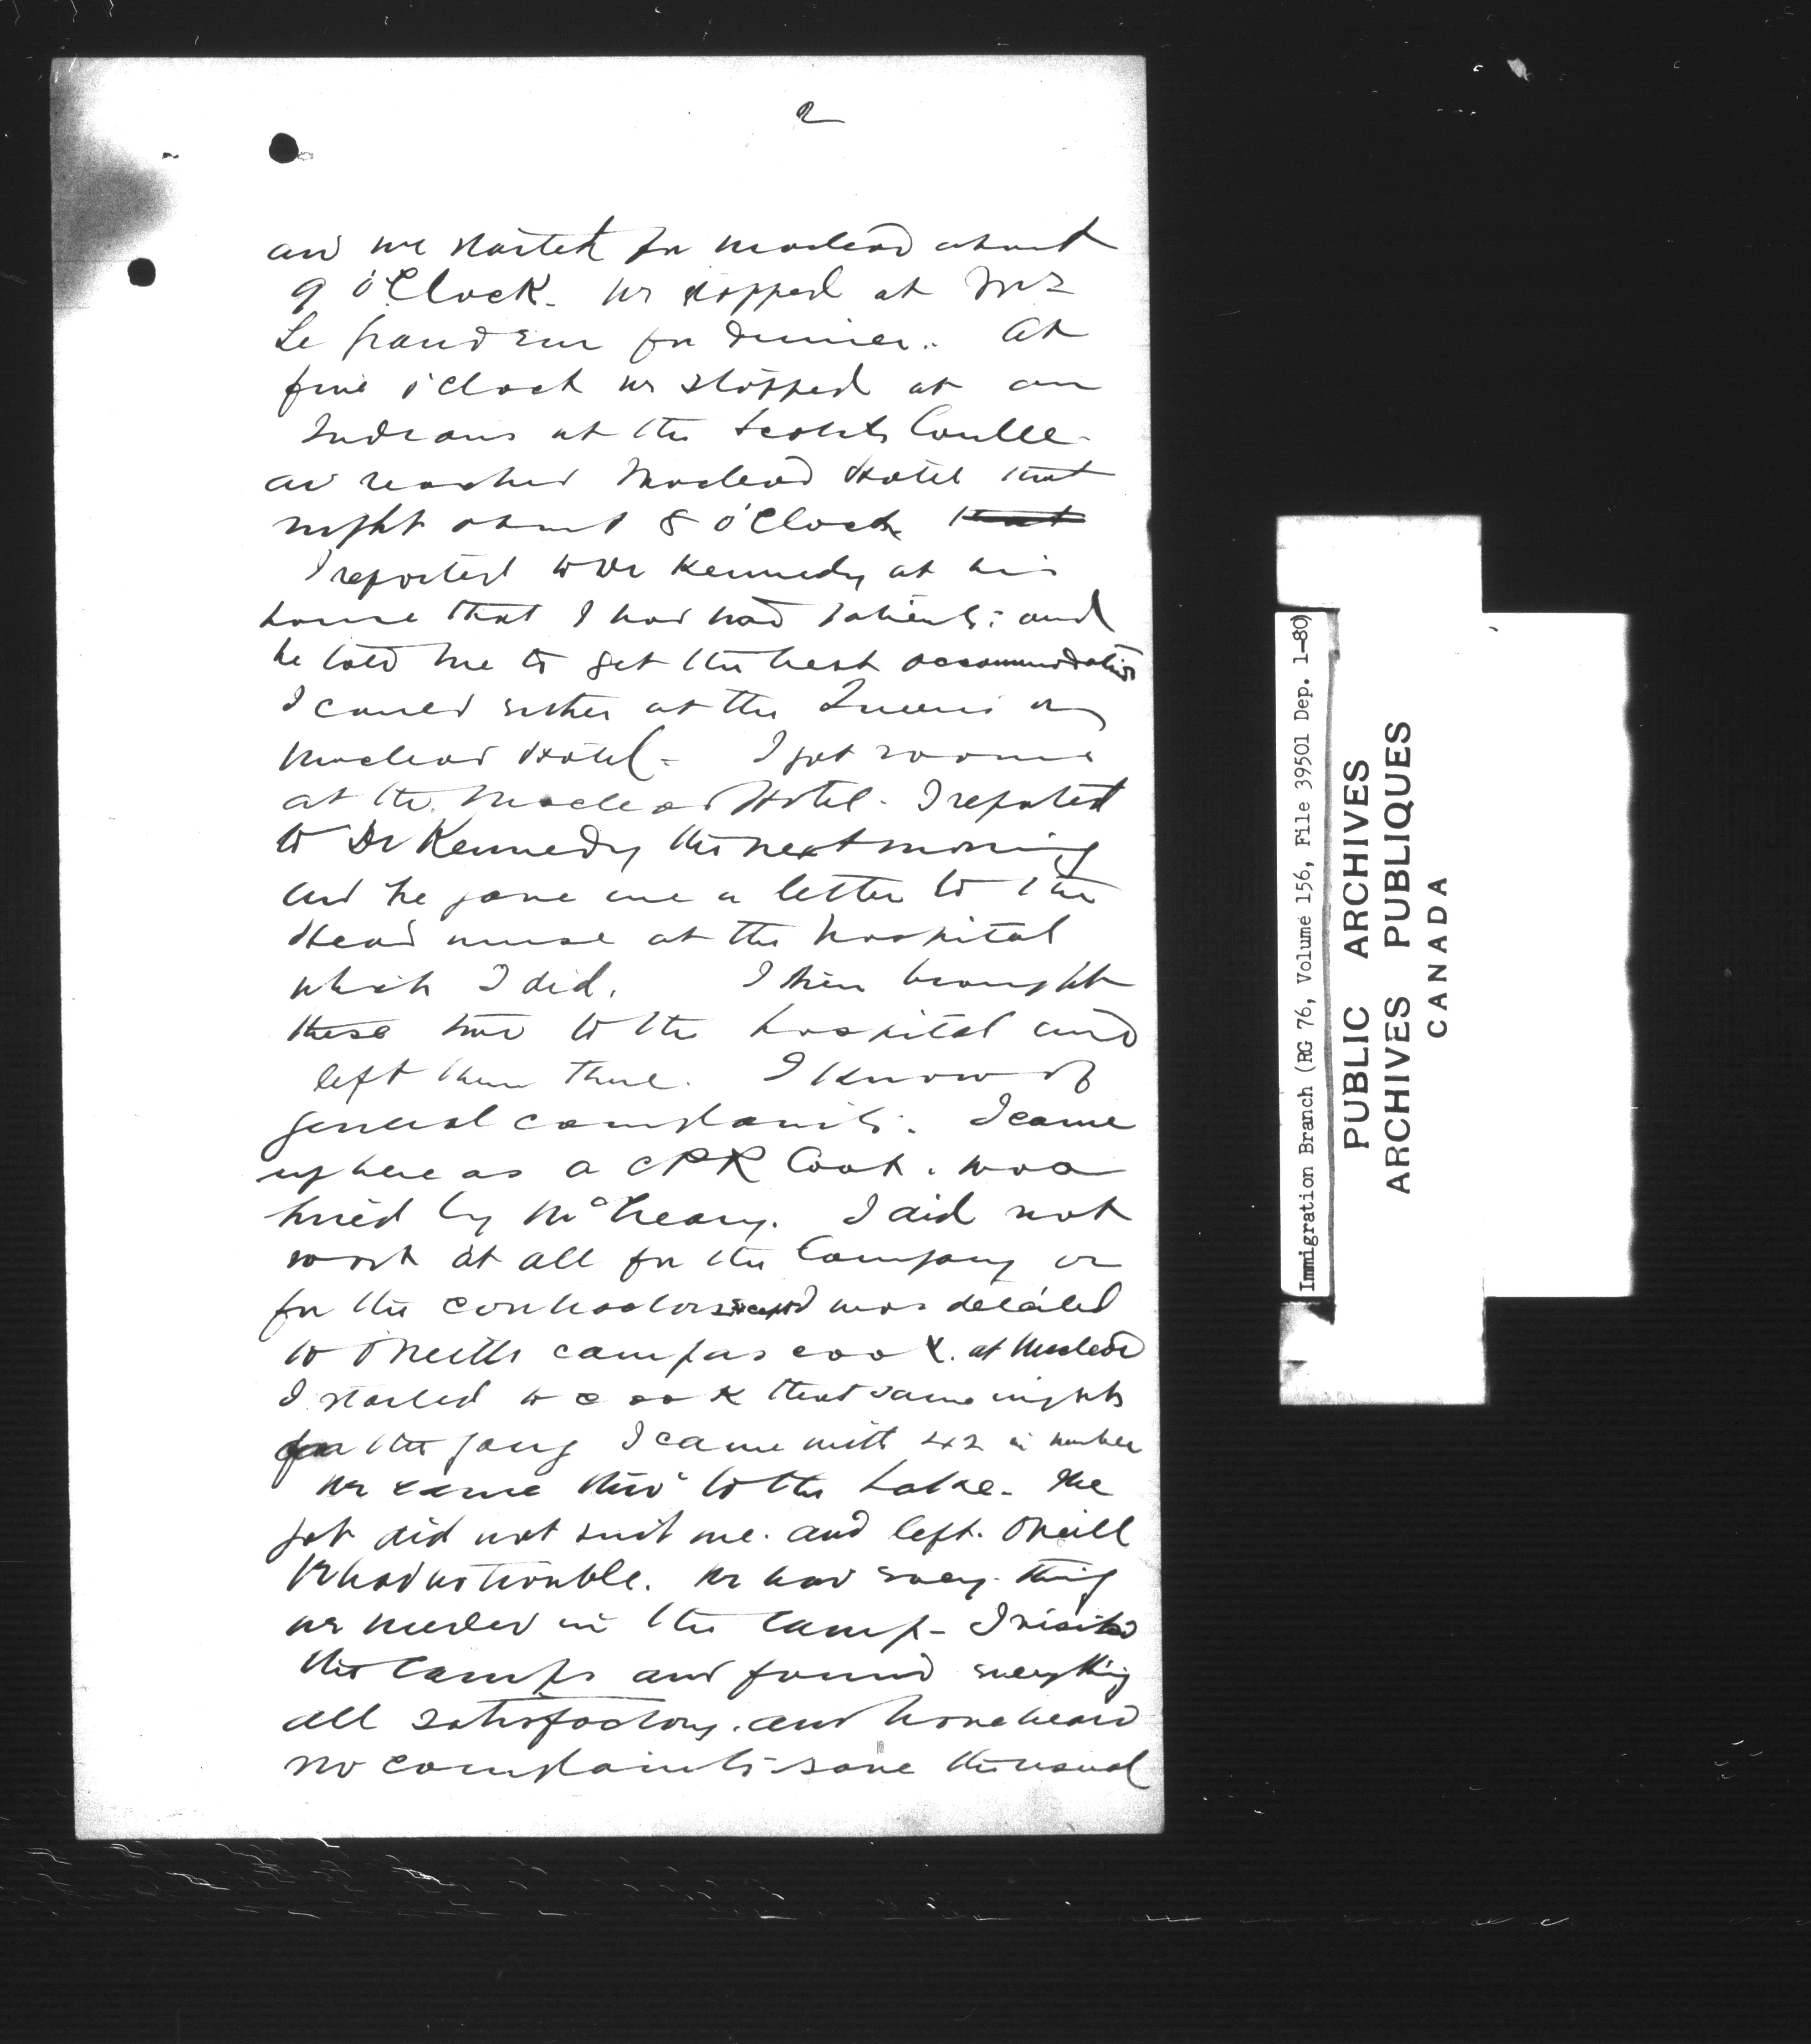 2
and we started for Macleod about
9 o'Clock. We stopped at Mr
Le for dinner. At
five o'clock we stopped at an
Indians at the Coulee.
and reached Macleod Hotel that
night about 8 o'Clock that
I reported to Dr Kennedy at his
house that I had had patients: and
he told me to get the best accommodation
I could either at the Queens or
Macleod Hotel - I got rooms
at the Macleod Hotel - I reported
to Dr Kennedy the next morning
and he gave me a letter to the
Head nurse at the hospital
which I did. I then brought
these two to the hospital and
left them there. I know of
general complaints. I came
up here as a CPR Cook. was
hired by McCreary. I did not
work at all for the Company or
for the contractors except was detailed
to O'Neills camp as cook. at Macleod
I started to cook that same night
for the gang I came with 42 in number
We came thro' to the Lake. The
job did not suit me. and left. O'Neill
had no trouble. We had every thing
we needed in the camp - I visited
the camps and found everything
all satisfactory. and have heard
no complaints - save the usual
Immigration Branch (RG 76, Volume 156, File 39501 Dep. 1-80)
PUBLIC ARCHIVES
ARCHIVES PUBLIQUES
CANADA